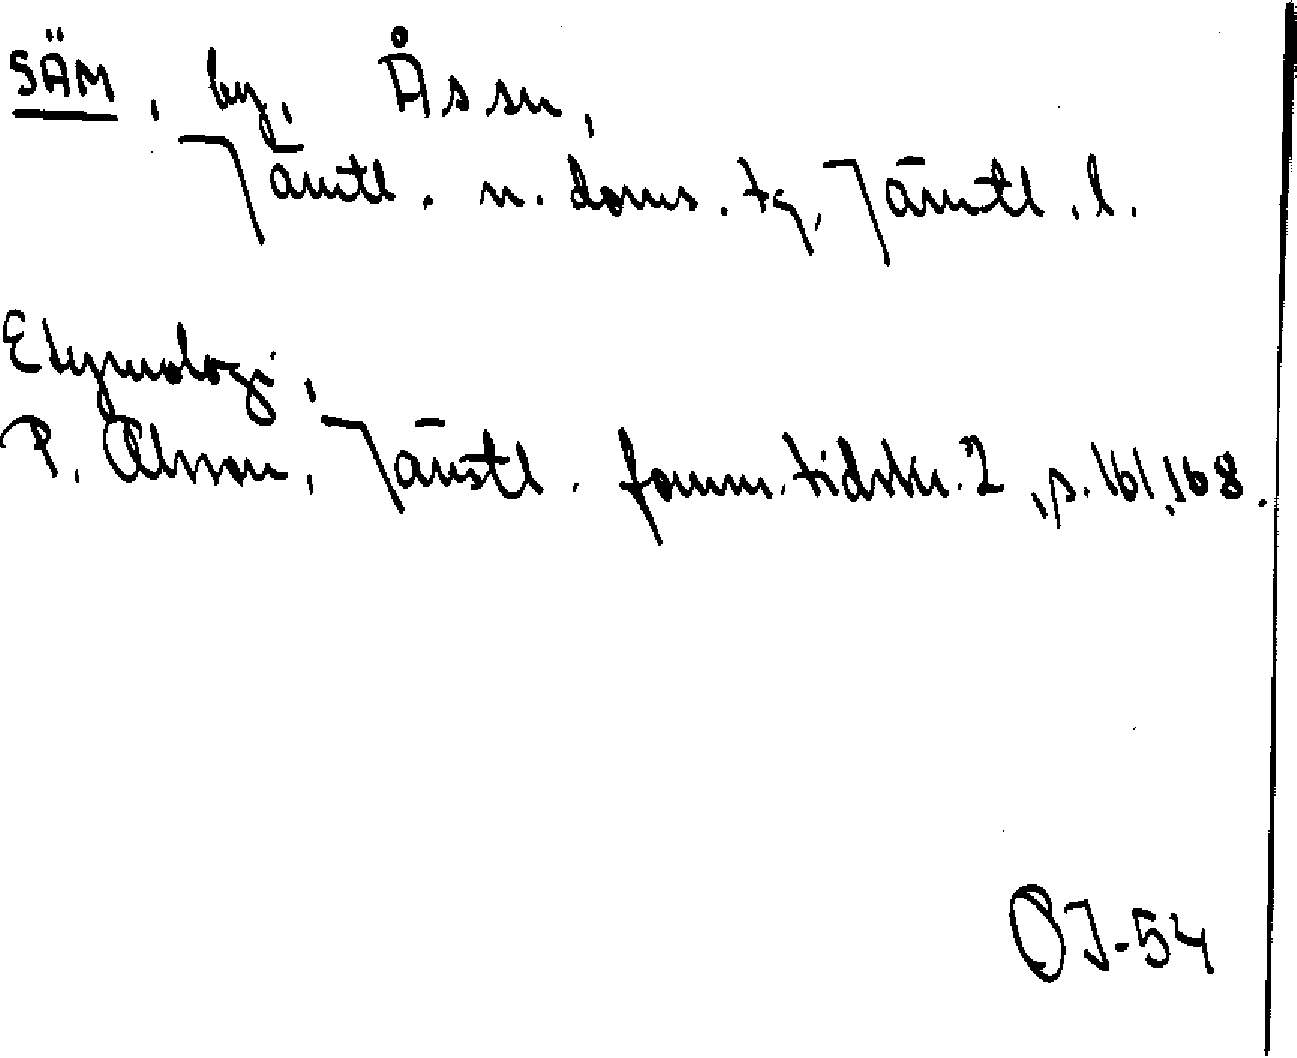 SÄM, by, Ås sn,
Jämtl. n. doms. tg, Jämtl. l.
Etymologi,
P. Olsson, Jämtl. fornm. tidskr. 2, s. 161, 168.
OJ-54